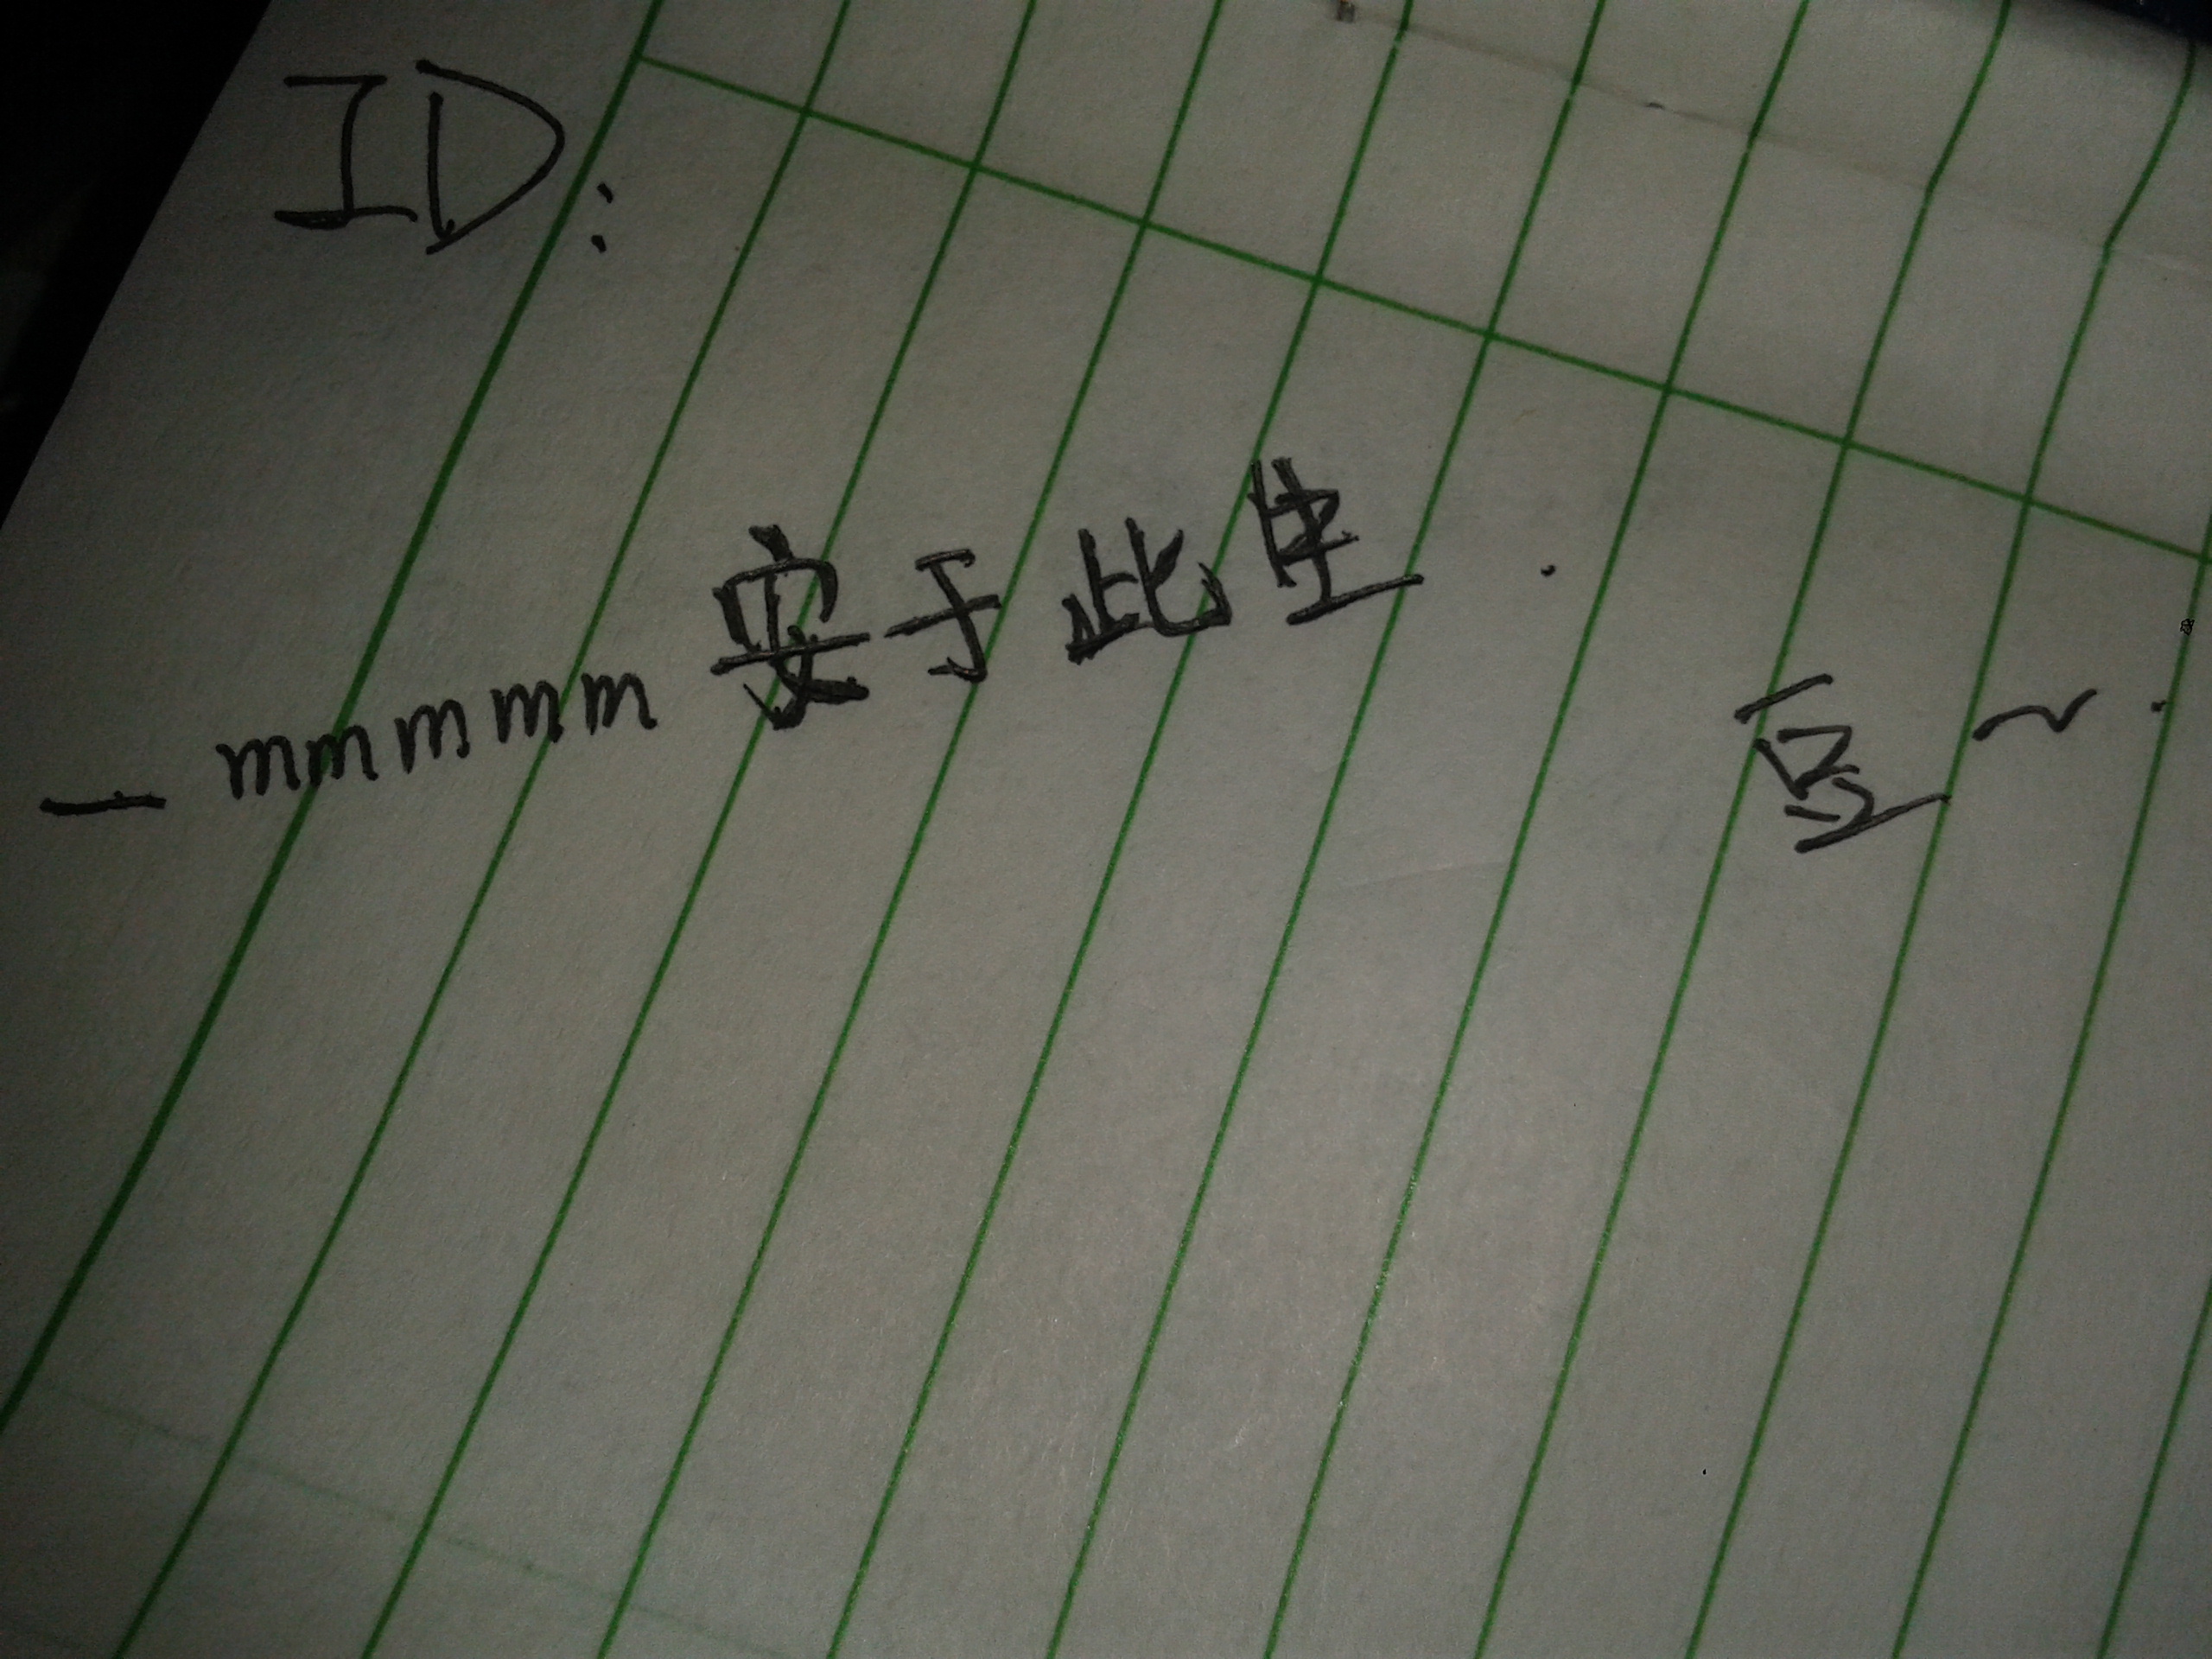 ID:
一mmmmm安于此生.